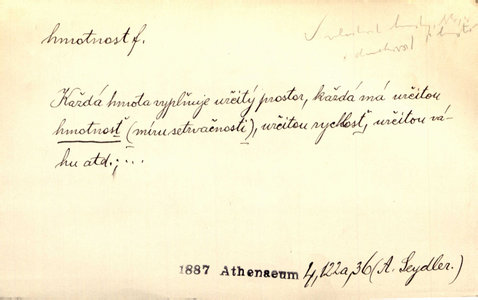 hmotnost f.
Každá hmota vyplňuje určitý prostor, každá má určitou
hmotnosť (míru setrvačnosti), určitou rychlosť, určitou vá-
hu atd.; ...
1887 Athenaeum 4, 122a, 36 (A. Seydler.)